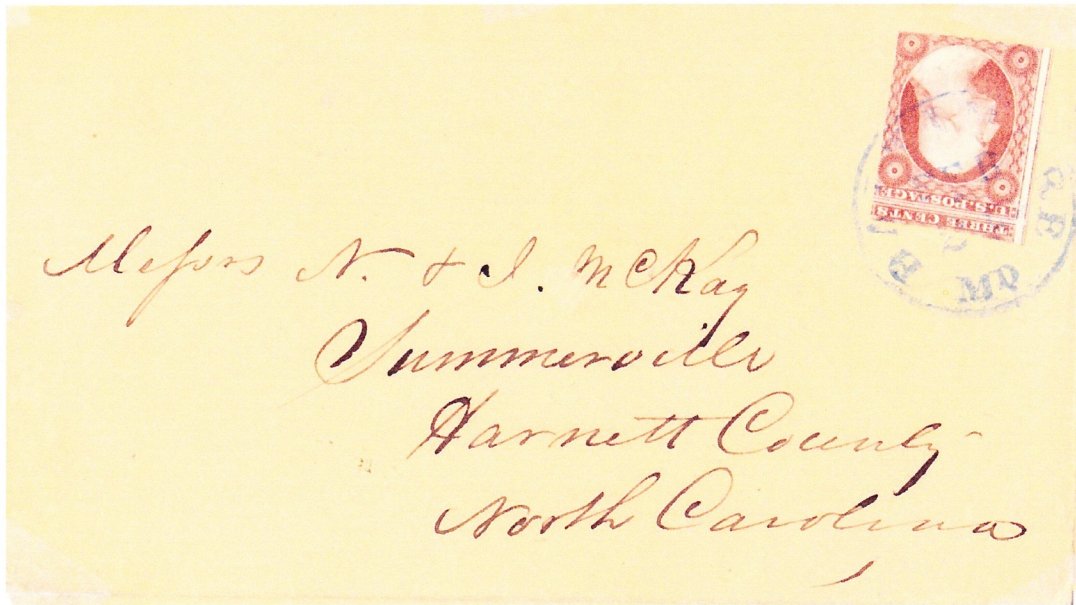 U.S. POSTAGE
THREE CENTS
MO
Messrs N. & J. McKay
Summerville
Harnett County
North Carolina